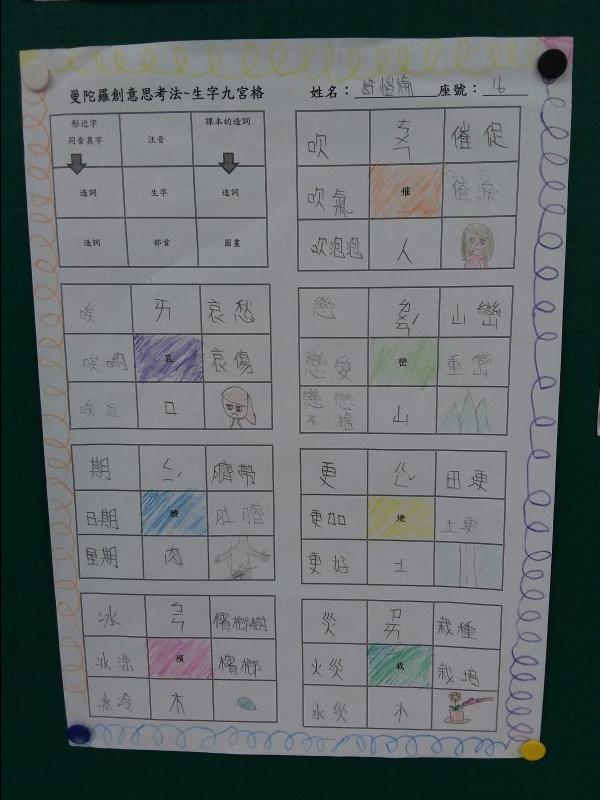 曼陀羅創意思考法~生字九宮格
姓名： 座號：16
形近字
同音異字
注音
課本的造詞
造詞 生字 造詞
造詞 部首 圖畫
吹 催促
吹氣 催 催淚
吹泡泡 人
唉 ㄞ 哀愁
唉喲 哀 哀傷
口
戀 山巒
戀愛 巒 重巒
戀戀不捨 山
期 臍帶
日期 臍 肚臍
星期 肉
更 田埂
更加 埂
更好 土
冰 檳榔樹
冰涼 檳 檳榔
冰冷 木
災 ㄗㄞ 栽種
火災 栽 栽培
水災 木